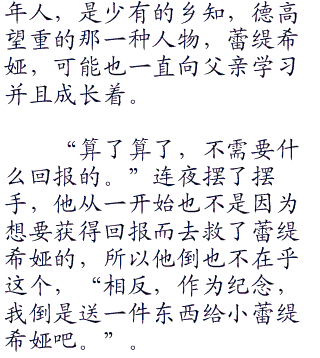 年人，是少有的乡知，德高
望重的那一种人物，蕾缇希
娅，可能也一直向父亲学习
并且成长着。
“算了算了，不需要什
么回报的。”连夜摆了摆
手，他从一开始也不是因为
想要获得回报而去救了蕾缇
希娅的，所以他倒也不在乎
这个，“相反，作为纪念，
我倒是送一件东西给小蕾缇
希娅吧。”。